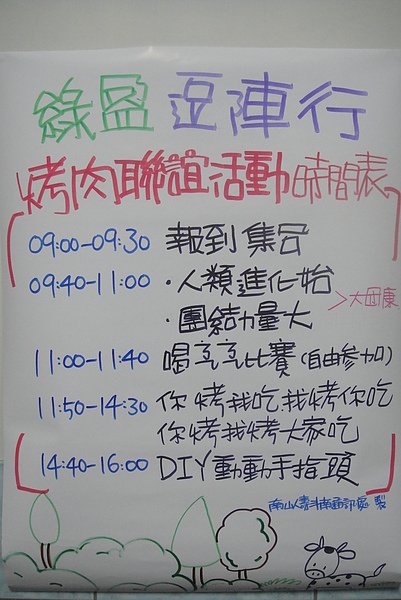 綠盈 逗陣行
烤肉聯誼活動時間表
09:00-09:30 報到集合
09:40-11:00 ·人類進化始
·團結力量大
>大田康
11:00-11:40 喝ㄎㄎ比賽(自由參加)
11:50-14:30 你烤我吃,我烤你吃
你烤我烤大家吃
14:40-16:00 DIY動動手指頭
南山人壽斗南通訊處 製